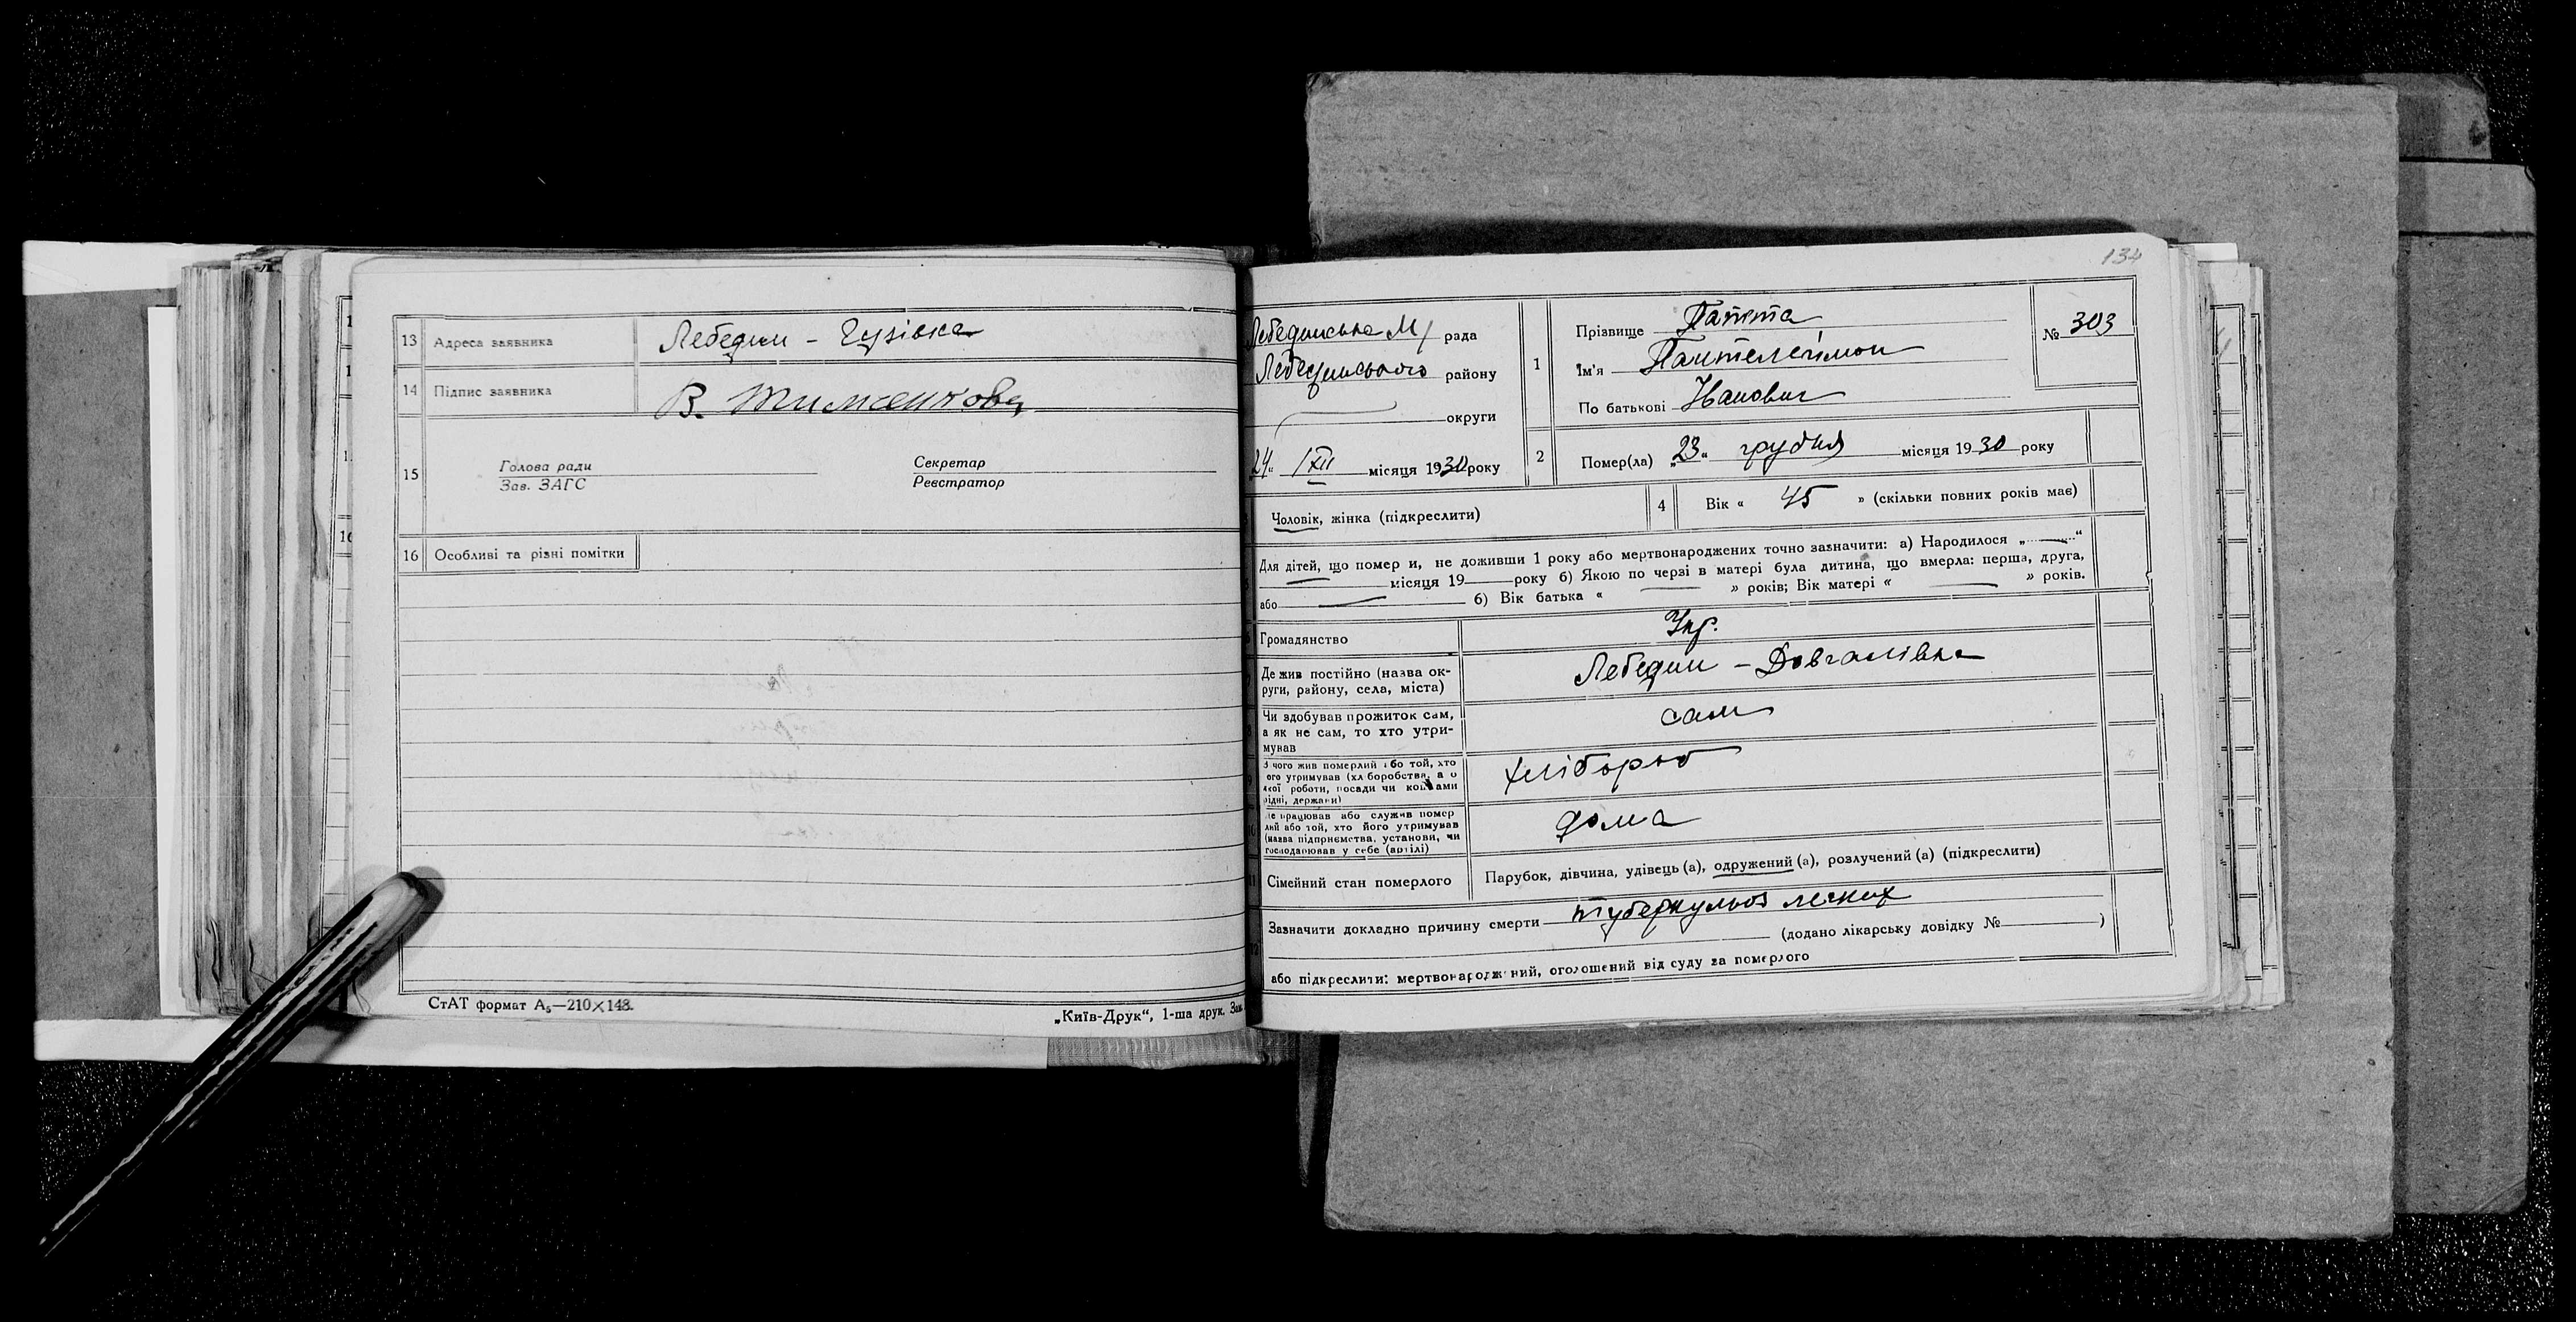 13 Адреса заявника Лебедин - Гузівка
14 Підпис заявника В. Тименкова
15 Голова ради Секретар
Зав. ЗАГС Реєстратор
16 Особливі та різні помітки
СтАТ формат А₅—210×148.
„Київ-Друк“, 1-ша друк. Зак.
134
Лебединська М/ рада
Лебединського району
округи
24 „ /XII місяця 1930 року
1 Прізвище
Ім'я Пантелеймон
По батькові Іванович
№ 303
2 Помер(ла) „23“ грудня місяця 1930 року
Чоловік, жінка (підкреслити)
4 Вік « 45 » (скільки повних років має)
Для дітей, що помер и, не доживши 1 року або мертвонароджених точно зазначити: а) Народилося „ “
місяця 19 року б) Якою по черзі в матері була дитина, що вмерла: перша, друга,
або б) Вік батька « » років; Вік матері « » років.
Громадянство Укр.
Де жив постійно (назва ок-
руги, району, села, міста) Лебедин - Довгалівка
Чи здобував прожиток сам,
а як не сам, то хто утри-
мував сам
З чого жив померлий або той, хто
його утримував (хл боробства, а о
якої роботи, посади чи коштами
рідні, держави) хлібороб
Де працював або служив помер
лий або той, хто його утримував
(назва підприємства, установи, чи
господарював у себе (артілі) дома
11 Сімейний стан померлого Парубок, дівчина, удівець (а), одружений (а), розлучений (а) (підкреслити)
12 Зазначити докладно причину смерти туберкульоз легких
(додано лікарську довідку № )
або підкреслити: мертвонароджений, оголошений від суду за померлого